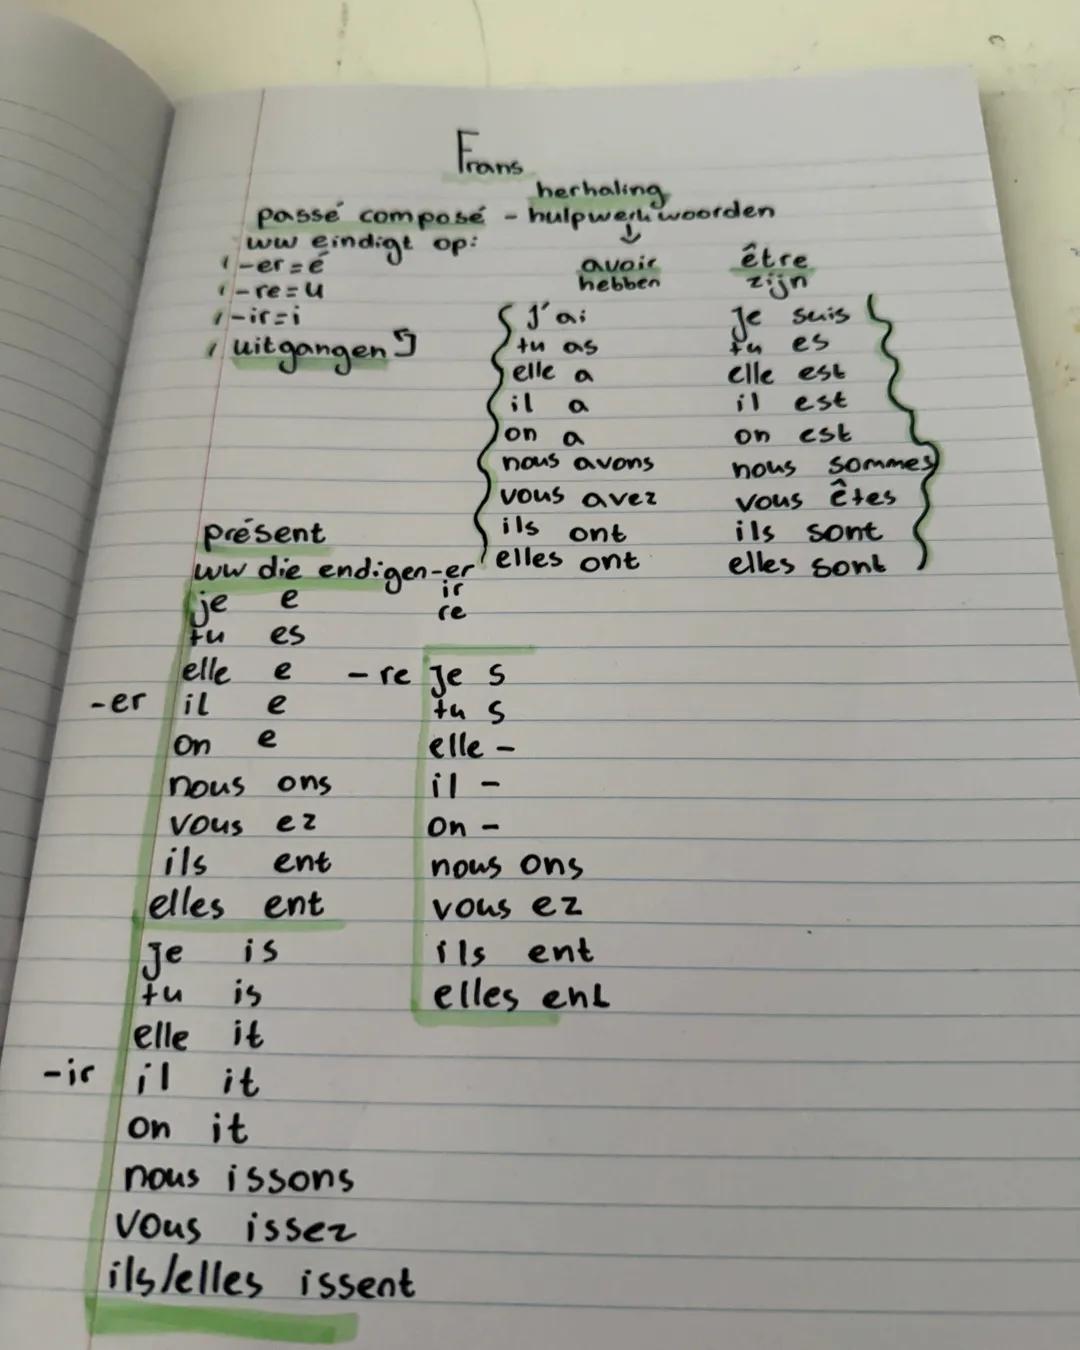 Frans
herhaling
passé composé - hulpwerkwoorden
ww eindigt op:
-er = é
-re = u
-ir = i
uitgangen
avoir
hebben
j'ai
tu as
elle a
il a
on a
nous avons
vous avez
ils ont
elles ont
être
zijn
je suis
tu es
elle est
il est
on est
nous sommes
vous êtes
ils sont
elles sont
présent
ww die endigen -er
ir
re
-er
je e
tu es
elle e
il e
on e
nous ons
vous ez
ils ent
elles ent
-re
je s
tu s
elle -
il -
on -
nous ons
vous ez
ils ent
elles ent
-ir
je is
tu is
elle it
il it
on it
nous issons
vous issez
ils/elles issent